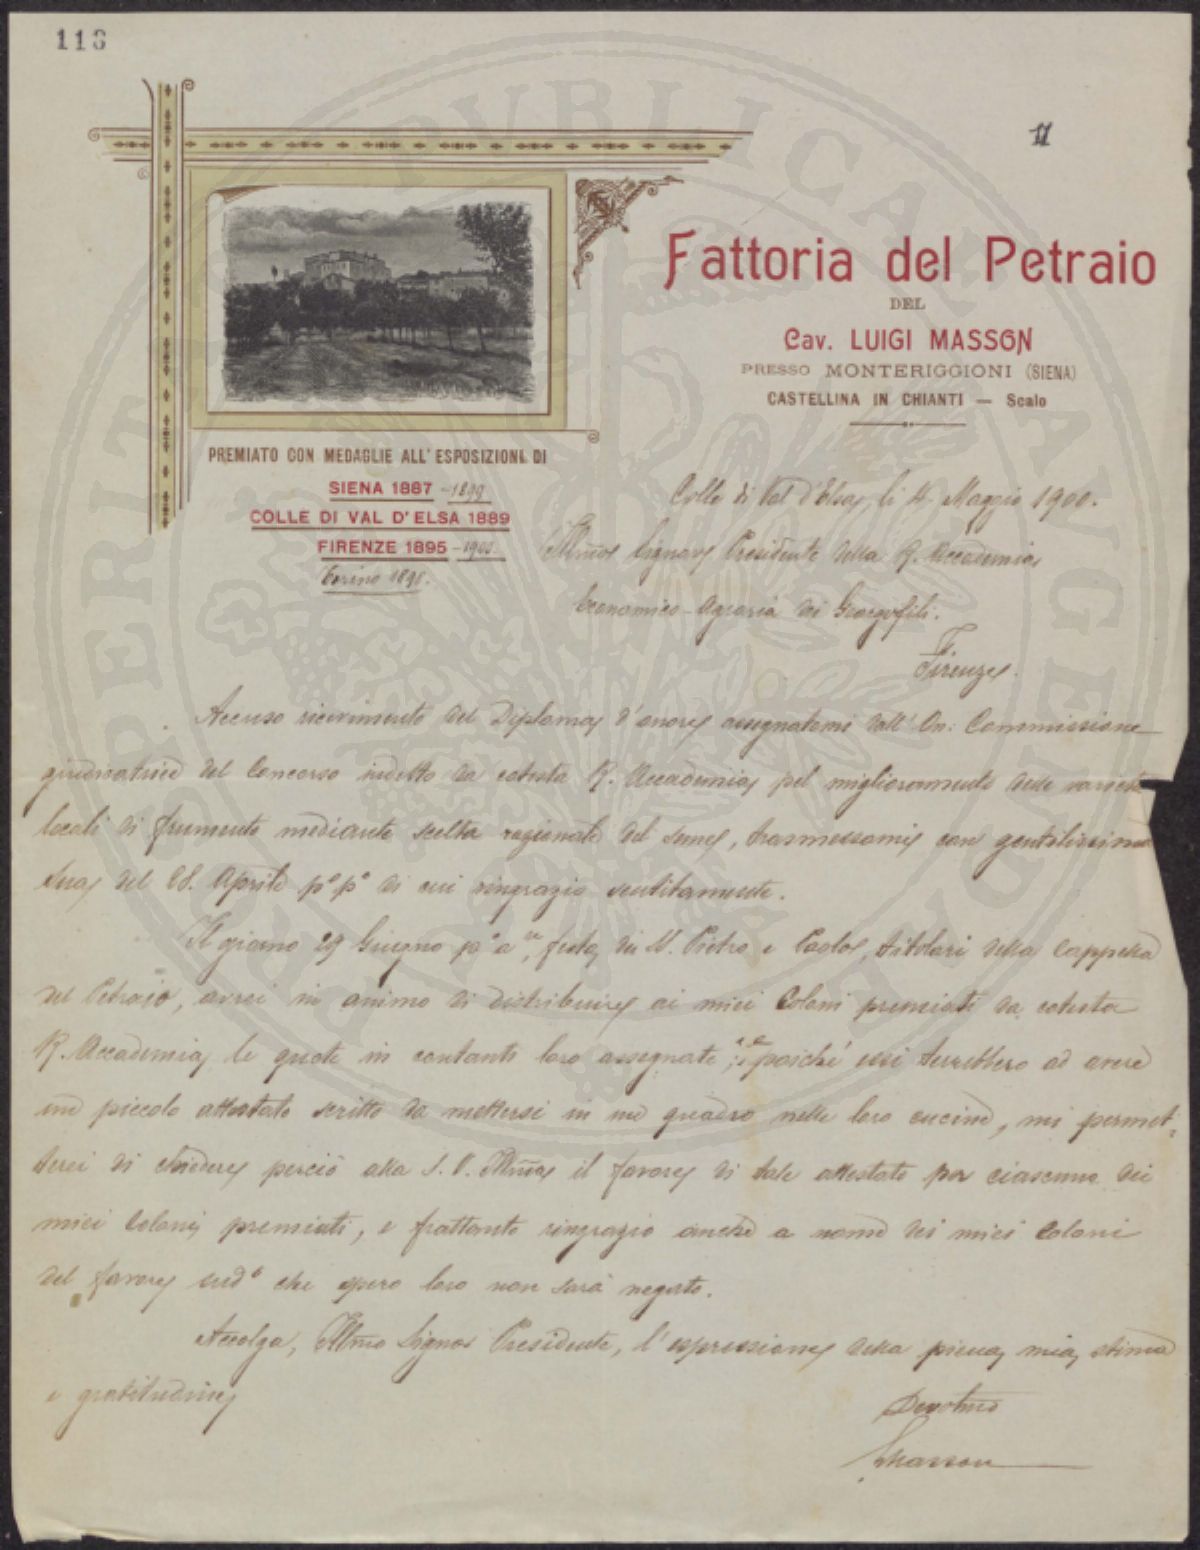 113
11
Fattoria del Petraio
DEL
Cav. LUIGI MASSON
PRESSO MONTERIGGIONI (SIENA)
CASTELLINA IN CHIANTI — Scalo
PREMIATO CON MEDAGLIE ALL'ESPOSIZIONI DI
SIENA 1887 - 1899
COLLE DI VAL D'ELSA 1889
FIRENZE 1895 - 1900
Torino 1898.
Colle di Val d'Elsa, li 4. Maggio 1900.
Illmo Signore Presidente della R. Accademia
Economico-Agraria dei Georgofili.
Firenze.
Accuso ricevimento del Diploma d'onore assegnatomi dall'On: Commissione
giudicatrice del Concorso indetto da cotesta R. Accademia pel miglioramento delle varietà
locali di frumento mediante scelta razionale del seme, trasmessomi con gentilissima
Sua del 28. Aprile p° p° di cui ringrazio sentitamente.
Il giorno 29 Giugno festa dei SS. Pietro e Paolo, titolari della Cappella
del Petraio, avrei in animo di distribuire ai miei Coloni premiati da cotesta
R. Accademia le quote in contanti loro assegnate; e poichè essi terrebbero ad avere
un piccolo attestato scritto da mettersi in un quadro nelle loro cucine, mi permet-
terei di chiedere perciò alla S. V. Illma il favore di tale attestato per ciascuno dei
miei Coloni premiati, e frattanto ringrazio anche a nome dei miei Coloni
del favore sud° che spero loro non sarà negato.
Accolga, Illmo Signor Presidente, l'espressione della piena mia stima
e gratitudine
Devotmo
LMasson